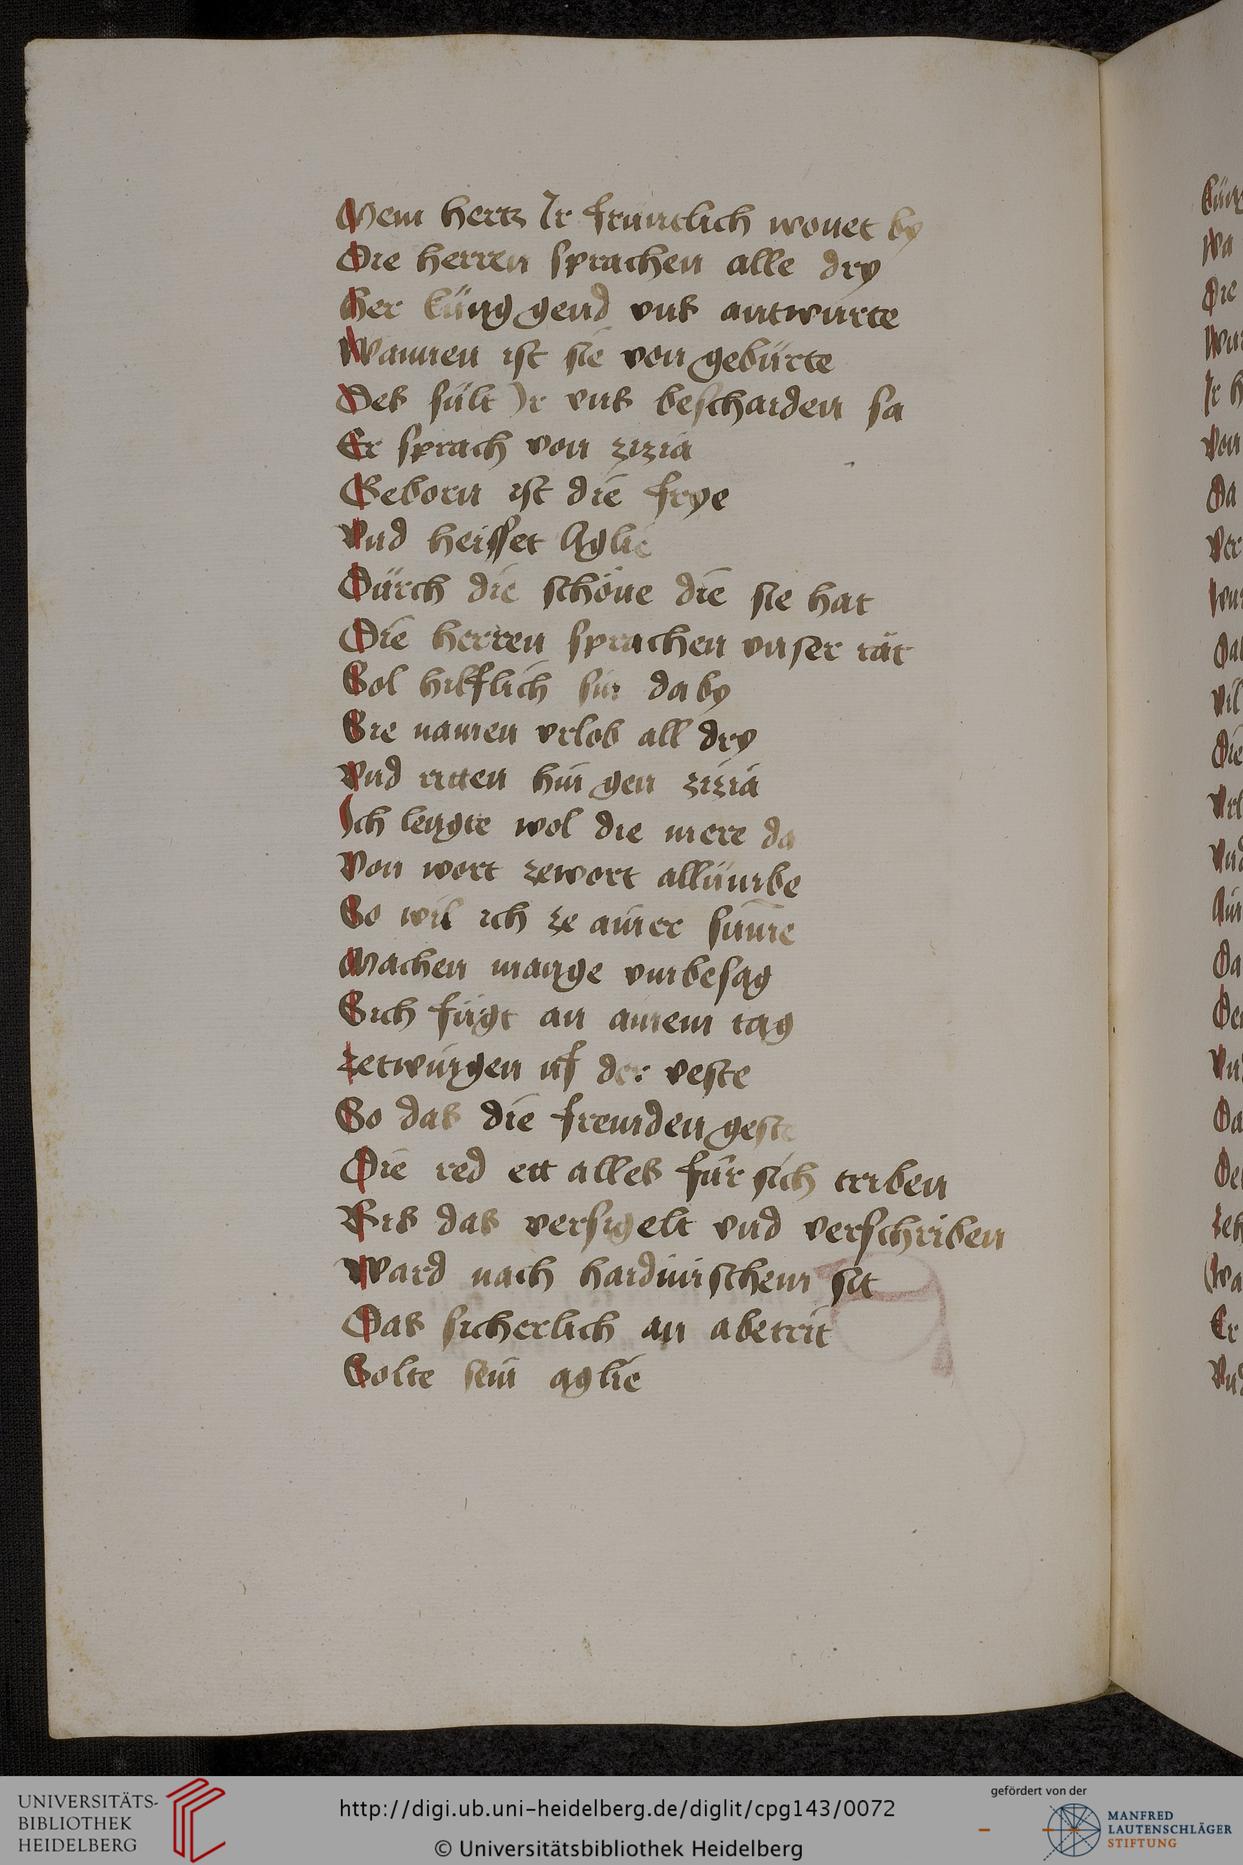 Mein hertz Ir früntlich wonet by
Die herren sprachen alle dry
her küng gend vns antwurte
Wannen ist sie von gebürte
Des sült Ir vns beschaiden sa
Er sprach von zizia
Geborn ist die frye
Vnd heisset Aglie
Durch die schöne die sie hat
Die herren sprachen vnser rät
Sol hilflich sin da by
Sie namen vrlob all dry
Vnd ritten hin gen zizia
Ich lengte wol die mere da
Von wort ze wort allümbe
So wil ich ze ainer sum̄e
Machen mange vmbesag
Sich fügt an ainem tag
zetwingen uf der veste
So das die fremden geste
Die red ett alles für sich triben
Bis das versigelt vnd verschriben
Ward nach haidinischem sit
Das sicherlich an abetrit
Solte sein aglie
UNIVERSITÄTS-
BIBLIOTHEK
HEIDELBERG
http://digi.ub.uni-heidelberg.de/diglit/cpg143/0072
© Universitätsbibliothek Heidelberg
gefördert von der
MANFRED
LAUTENSCHLÄGER
STIFTUNG